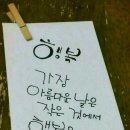 행복
가장
아름다운 날은
작은 것에서
행복을